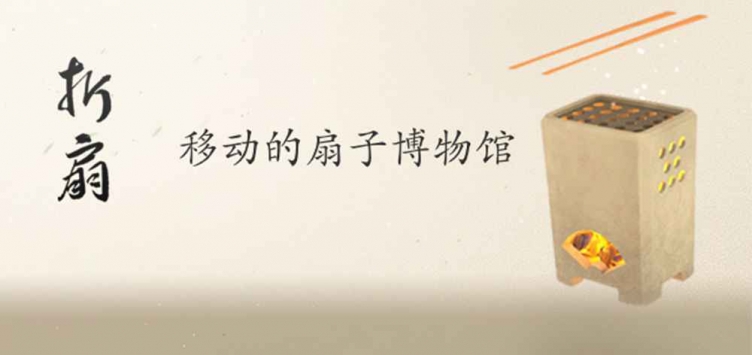 折扇
移动的扇子博物馆